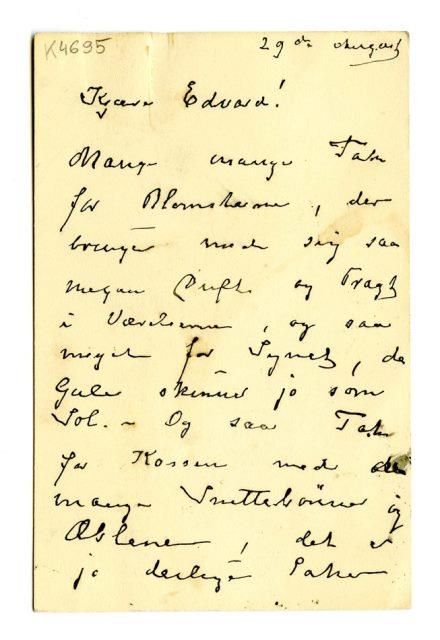 K4695
29de August
Kjære Edvard!
Mange mange Tak
for Blomsterne, der
bringer med sig saa
megen Duft og Pragt
i Værelserne, og saa
meget for Synet, de
Gule skinner jo som
Sol. - Og saa Tak
for Kassen med de
mange Snittebønner og
Æblerne, det er
jo deilige Sager